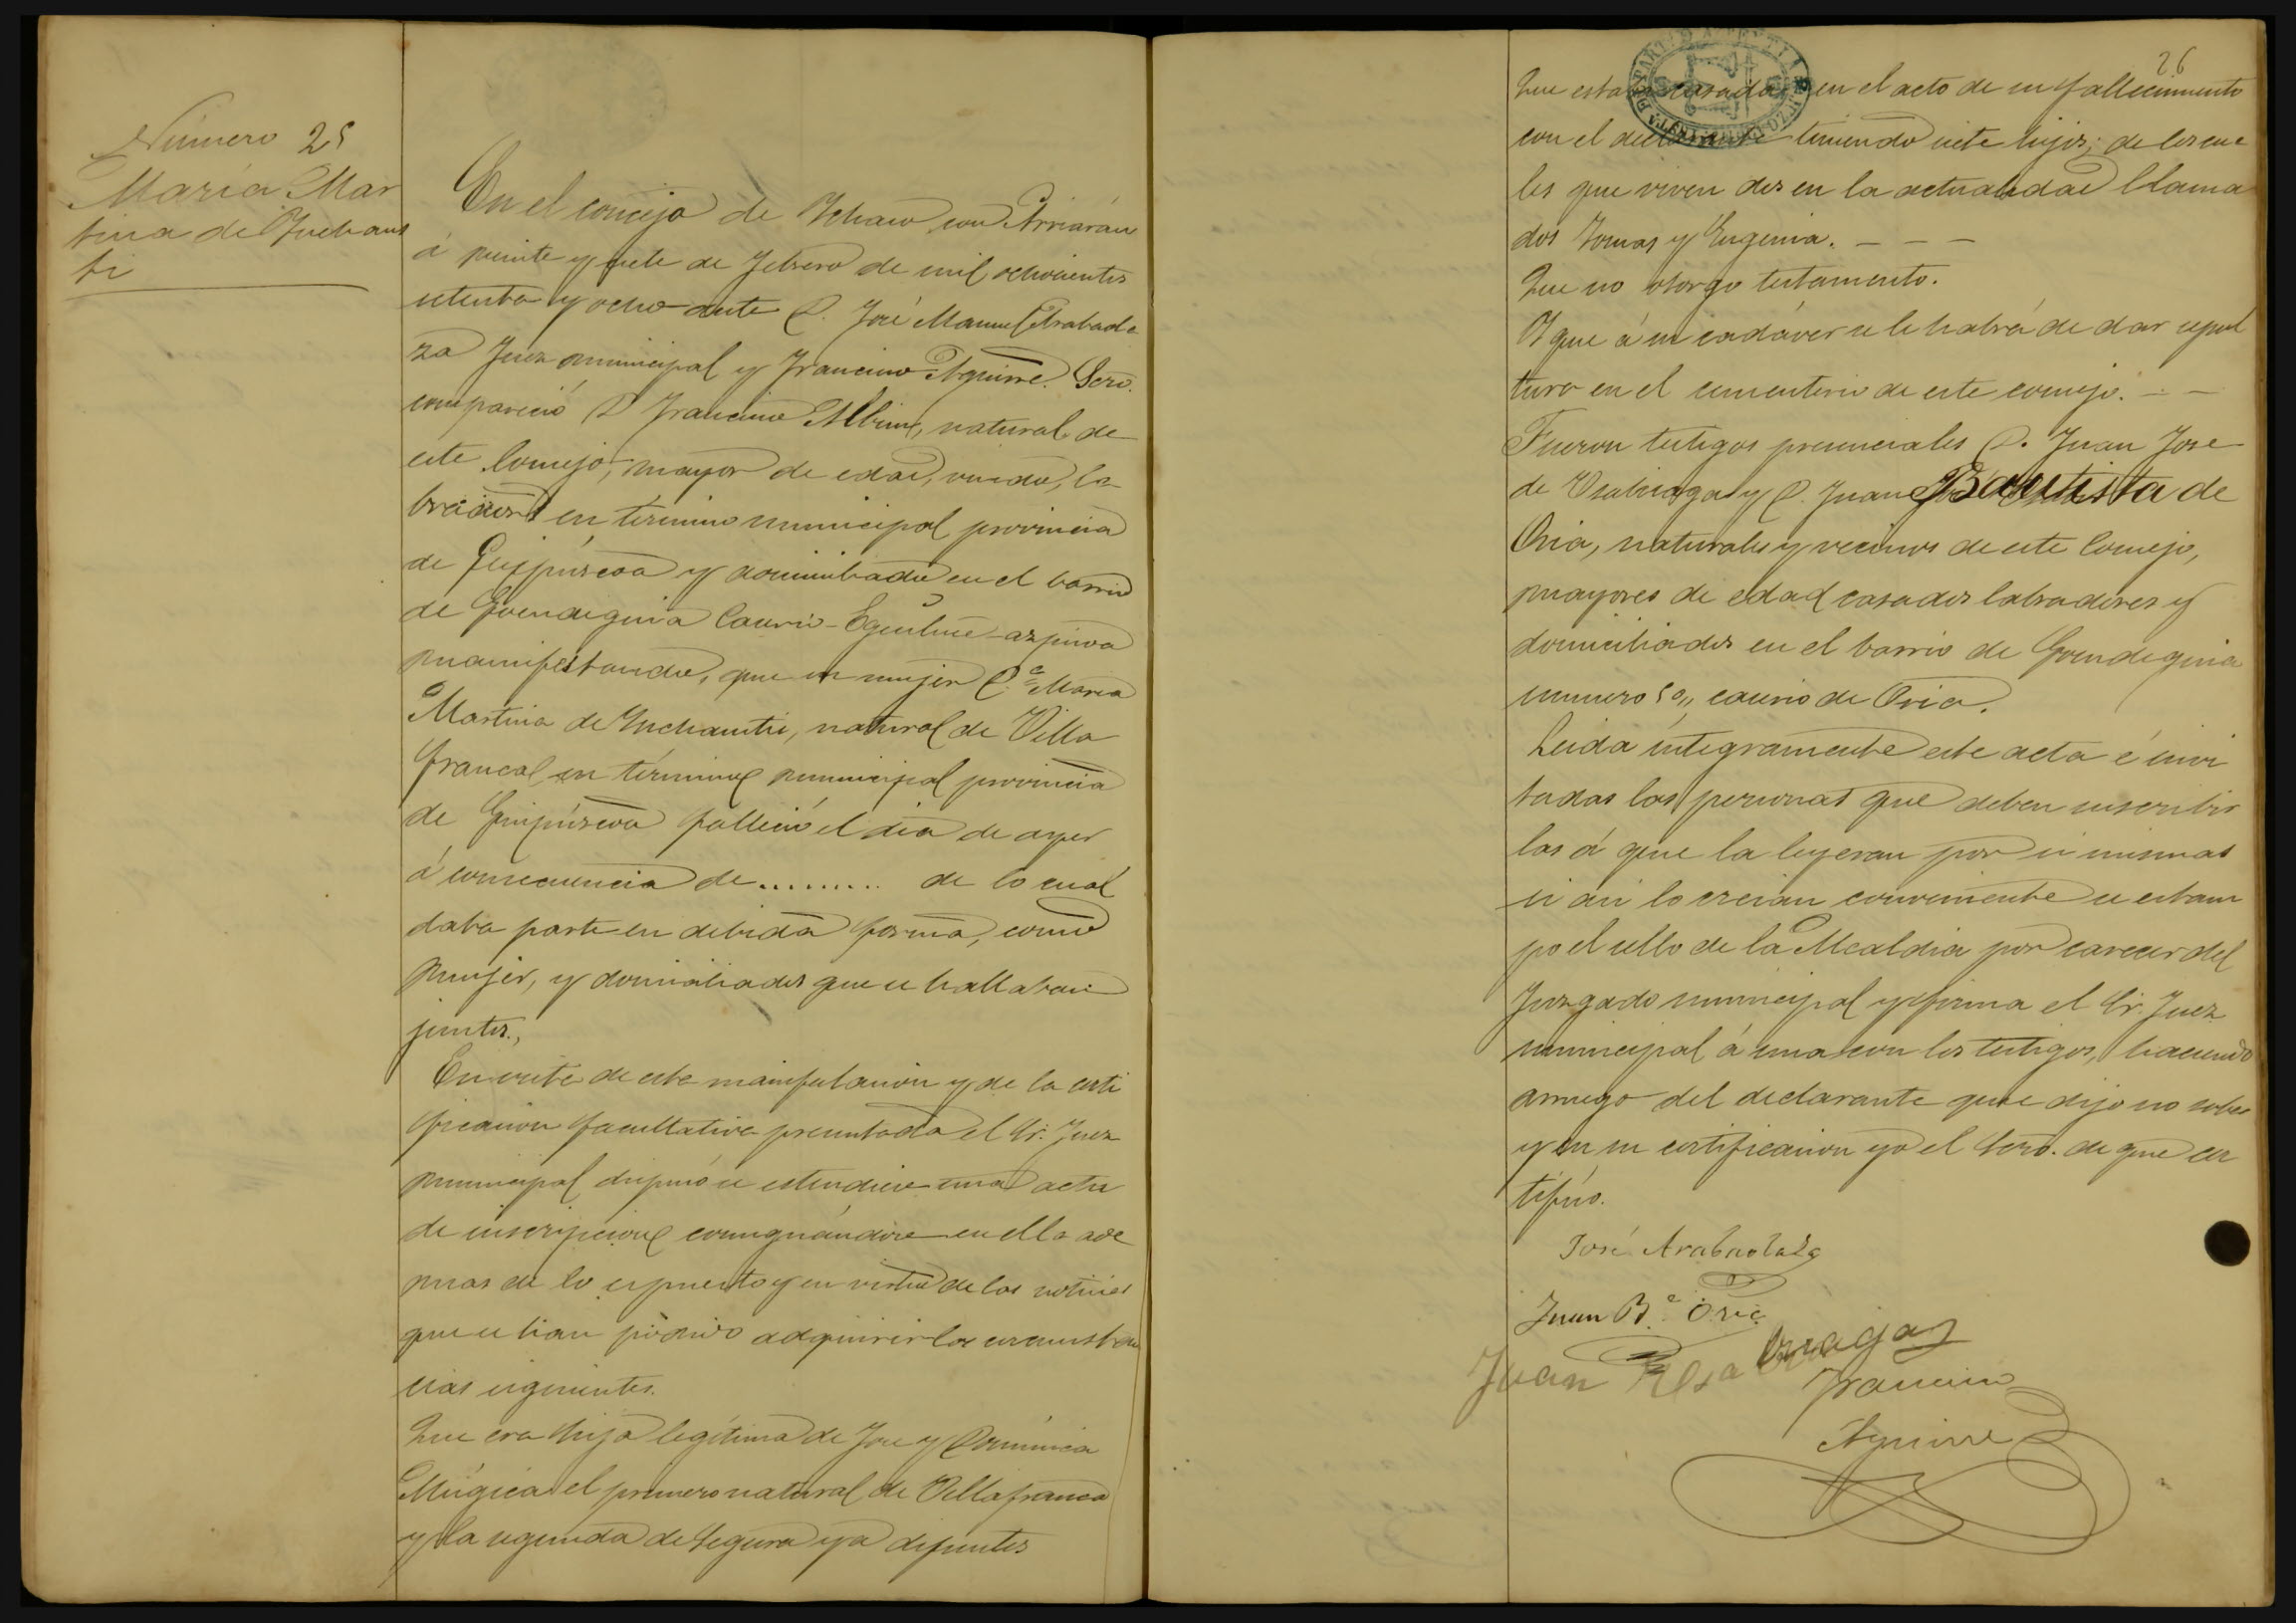 Número 25
María Mar
tina de Ynchaus
ti
En el concejo de Ychaso con Arriarán
á veinte y siete de Febrero de mil ochocientos
setenta y ocho ante D. José Manuel Arabaola
za Juez municipal y Francisco Aguirre Scro.
compareció D Francisco Albisu, natural de
este Concejo, mayor de edad, viudo, la
brador en término municipal provincia
de Guipúscoa y domiciliado en el barrio
de Goendeguia Caserio
manifestando, que su mujer D.ª María
Martina de Ynchausti, natural de Villa
franca en término municipal provincia
de Guipúscoa falleció el dia de ayer
á consecuencia de .......... de lo cual
daba parte en debida forma, como
mujer, y domiciliados que se hallaban
juntos.,
En vista de esta manifestacion y de la certi
ficacion facultativa presentada el Sr. Juez
municipal dispuso se estendiese una acta
de inscripcion consignándose en ella ade
mas de lo espuesto y en virtud de las noticias
que se han podido adquirir las circunstan
cias siguientes.
Que era hija legítima de José y Dominica
Múgica el primero natural de Villafranca
y la segunda de Segura ya difuntos
26
Que estaba casada en el acto de su fallecimiento
con el declarante teniendo siete hijos; de los cua
les que viven dos en la actualidad llama
dos Tomas y Eugenia. - - -
Que no otorgo testamento.
Y que á su cadáver se le habrá de dar sepul
tura en el cementerio de este concejo. - -
Fueron testigos presenciales D. Juan Jose
de Usabiaga y D. Juan Bautista de
Oria, naturales y vecinos de este Concejo,
mayores de edad casados labradores y
domiciliados en el barrio de Goendeguia
numero caserio de Oria.
Leida íntegramente este acta é invi
tadas las personas que deben suscribir
las á que la leyeran por si mismas
si asi lo creian conveniente se estam
po el sello de la Alcaldia por carecer del
Juzgado municipal y firma el Sr. Juez
municipal á una con los testigos, haciendo
arruego del declarante que dijo no saber
y en su certificacion yo el Scro. de que cer
tifico.
José Arabaolaza
Juan B.ª Oria
Juan Usabiaga
Francisco
Aguirre